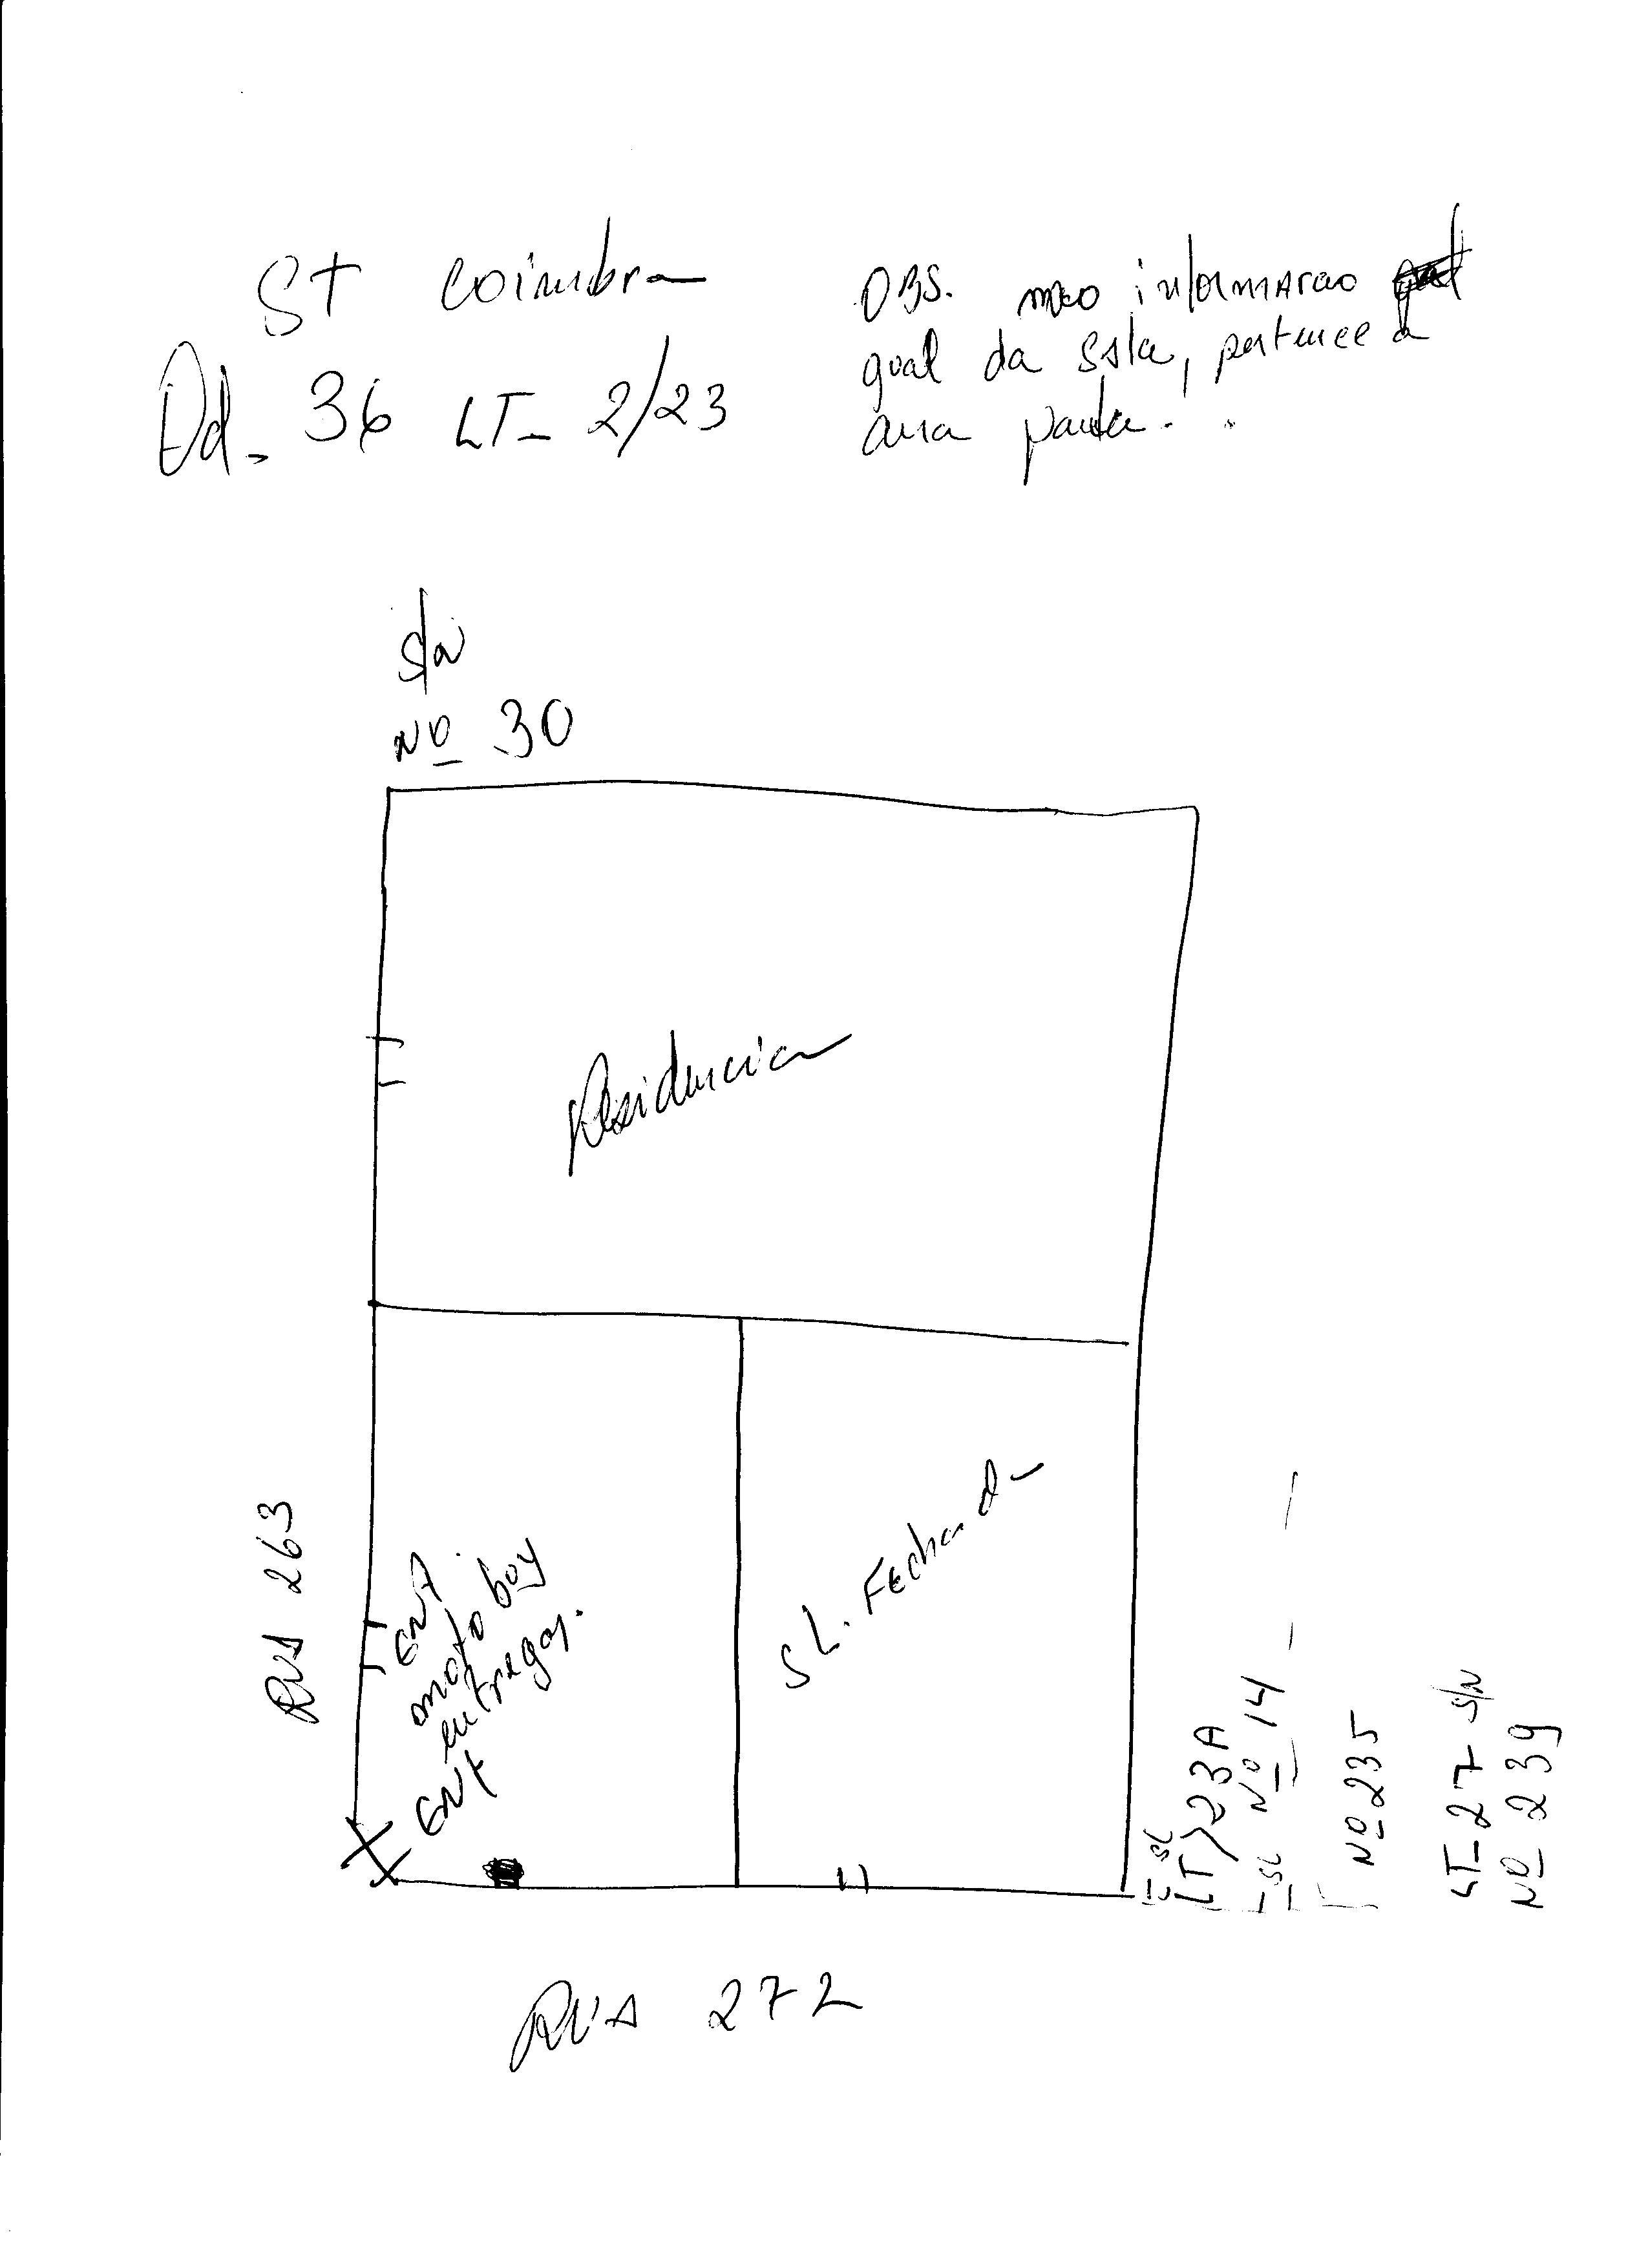 ST Coimbra
Qd- 36 LT- 2/23
OBS. não informarao
qual da Sala, pertence a
ana paula.
S/N
Nº 30
Residencia
RUA 263
ENT
moto boy
entregas.
ENT
SL. FEchada
SL
LT 23A
SL Nº 14
Nº 235
LT- 27 S/N
Nº 239
RUA 272